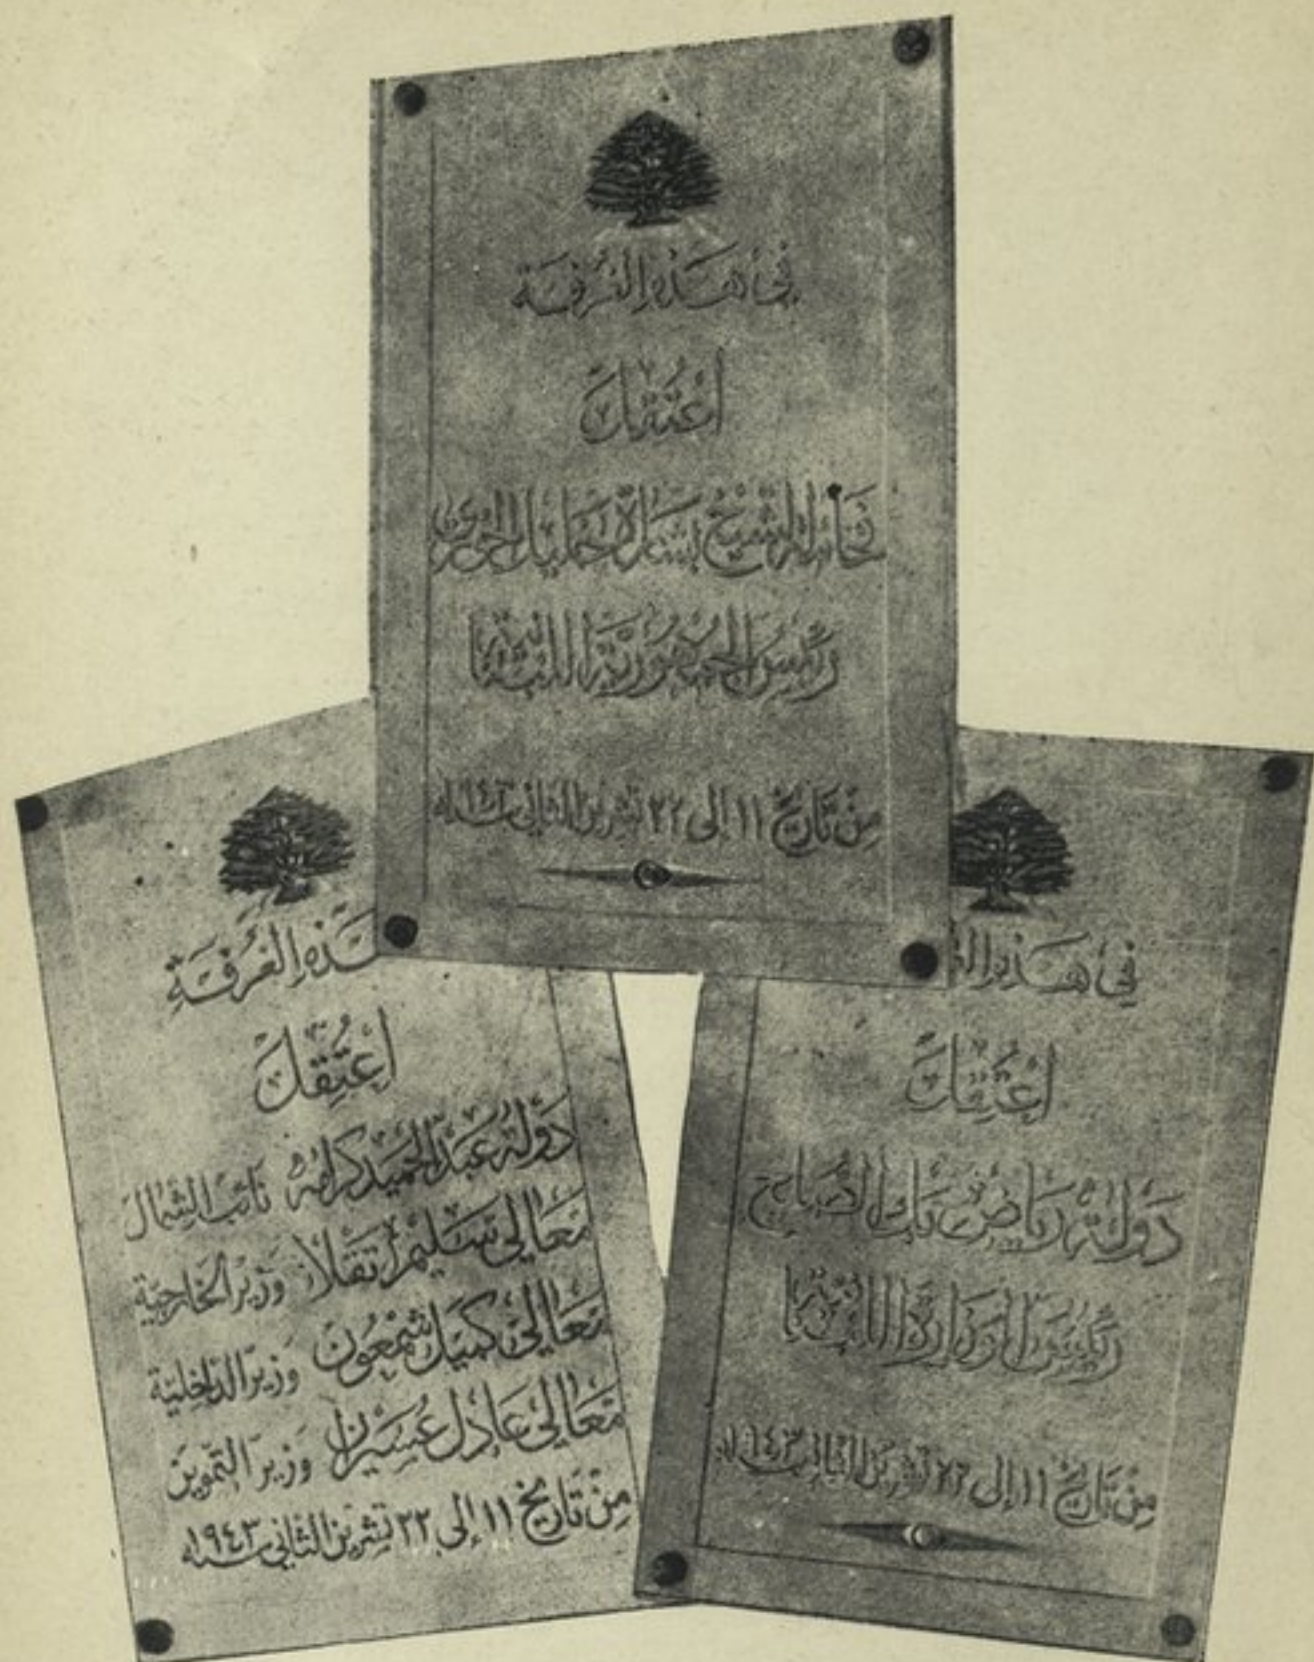 في هذه الغرفة
اعتقل
فخامة الشيخ بشارة خليل الخوري
رئيس الجمهورية اللبنانية
من تاريخ ١١ إلى ٢٢ تشرين الثاني سنة ١٩٤٣
هذه الغرفة
اعتقل
دولة عبد الحميد كرامه نائب الشمال
معالي سليم تقلا وزير الخارجية
معالي كميل شمعون وزير الداخلية
معالي عادل عسيران وزير التموين
من تاريخ ١١ إلى ٢٢ تشرين الثاني سنة ١٩٤٣
في هذه
اعتقل
دولة رياض بك الصلح
رئيس الوزارة اللبنانية
من تاريخ ١١ إلى ٢٢ تشرين الثاني سنة ١٩٤٣